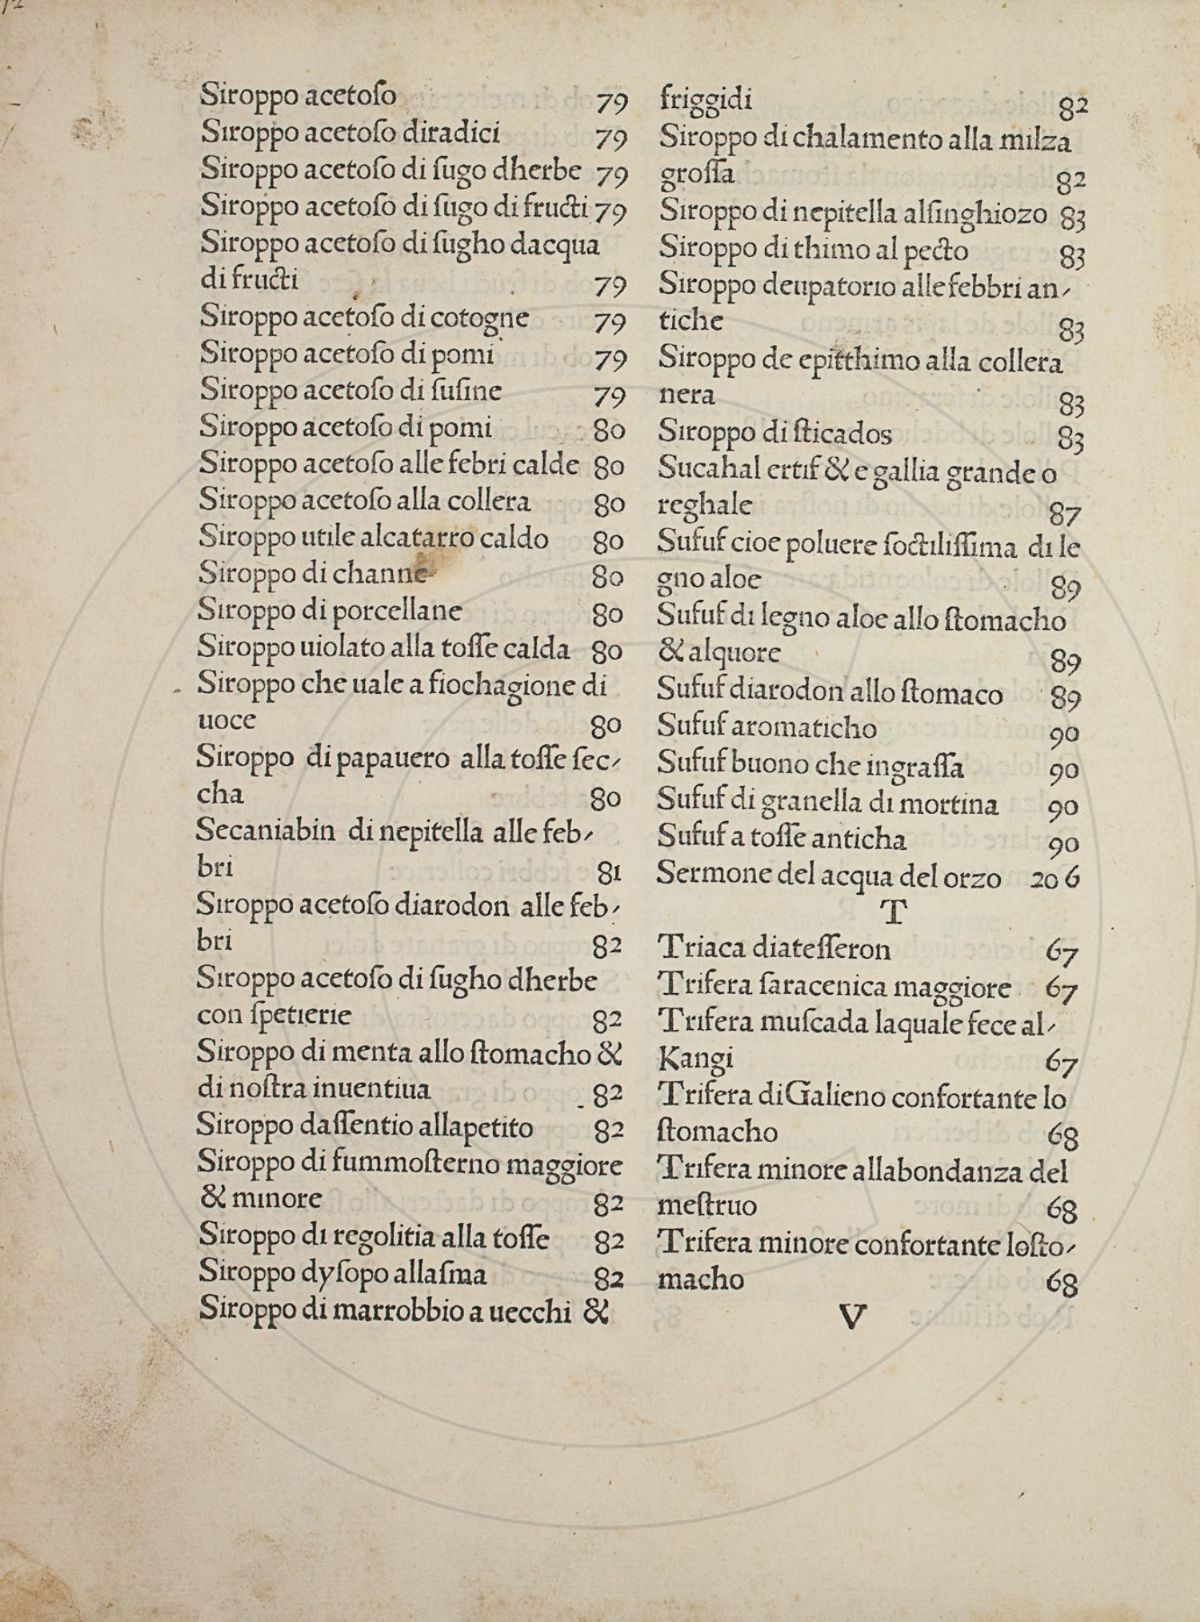 Siroppo acetoſo 79
Siroppo acetoſo diradici 79
Siroppo acetoſo di ſugo dherbe 79
Siroppo acetoſo di ſugo di fructi 79
Siroppo acetoſo di ſugho dacqua
di fructi 79
Siroppo acetoſo di cotogne 79
Siroppo acetoſo di pomi 79
Siroppo acetoſo di ſuſine 79
Siroppo acetoſo di pomi 80
Siroppo acetoſo alle febri calde 80
Siroppo acetoſo alla collera 80
Siroppo utile alcatarro caldo 80
Siroppo di channe 80
Siroppo di porcellane 80
Siroppo uiolato alla toſſe calda 80
Siroppo che uale a fiochagione di
uoce 80
Siroppo di papauero alla toſſe ſec⸗
cha 80
Secaniabin di nepitella alle feb⸗
bri 81
Siroppo acetoſo diarodon alle feb⸗
bri 82
Siroppo acetoſo di ſugho dherbe
con ſpetierie 82
Siroppo di menta allo ſtomacho &
di noſtra inuentiua 82
Siroppo daſſentio allapetito 82
Siroppo di fummoſterno maggiore
& minore 82
Siroppo di regolitia alla toſſe 82
Siroppo dyſopo allaſma 82
Siroppo di marrobbio a uecchi &
friggidi 82
Siroppo di chalamento alla milza
groſſa 82
Siroppo di nepitella alſinghiozo 83
Siroppo di thimo al pecto 83
Siroppo deupatorio alle febbri an⸗
tiche 83
Siroppo de epitthimo alla collera
nera 83
Siroppo di ſticados 83
Sucahal ertif & e gallia grande o
reghale 87
Sufuf cioe poluere ſoctiliſſima di le
gno aloe 89
Sufuf di legno aloe allo ſtomacho
& alquore 89
Sufuf diarodon allo ſtomaco 89
Sufuf aromaticho 90
Sufuf buono che ingraſſa 90
Sufuf di granella di mortina 90
Sufuf a toſſe anticha 90
Sermone del acqua del orzo 206
T
Triaca diateſſeron 67
Trifera ſaracenica maggiore 67
Trifera muſcada laquale fece al⸗
Kangi 67
Trifera di Galieno confortante lo
ſtomacho 68
Trifera minore allabondanza del
meſtruo 68
Trifera minore confortante loſto⸗
macho 68
V